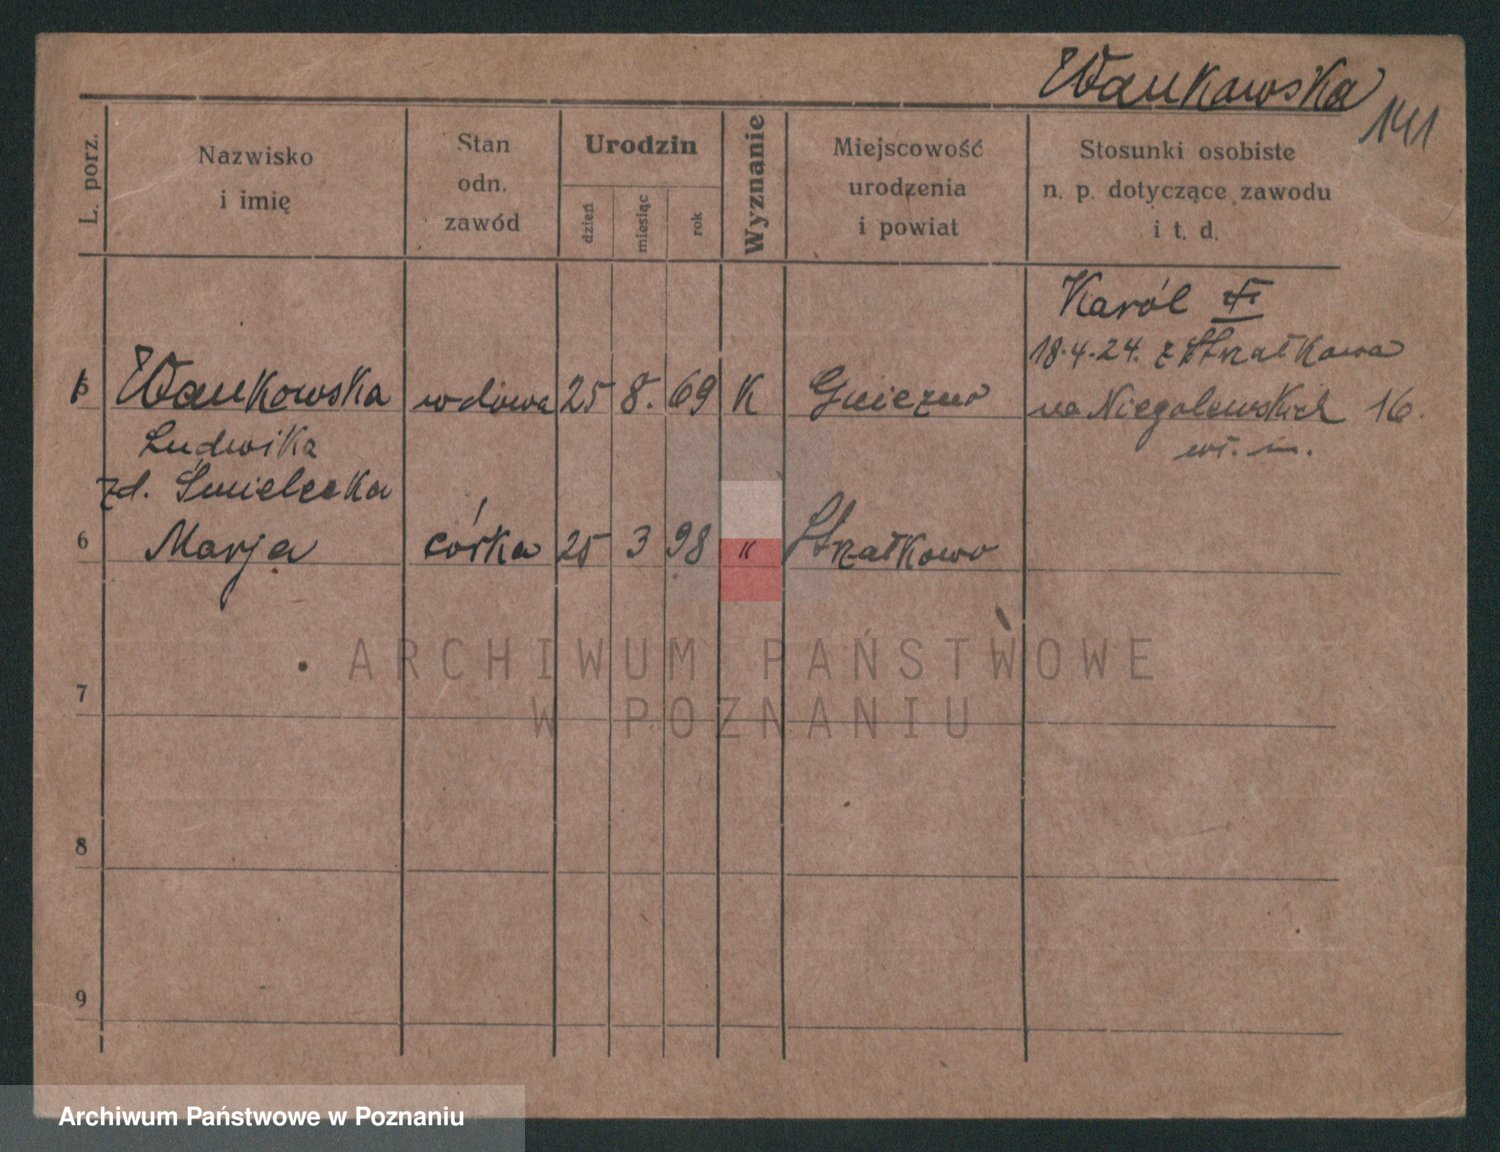 Wankowska
141
L. porz.
Nazwisko
i imię
Stan
odn.
zawód
Urodzin
dzień
miesiąc
rok
Wyznanie
Miejscowość
urodzenia
i powiat
Stosunki osobiste
n. p. dotyczące zawodu
i t. d.
Karól
18.4.24. z Strzałkowa
5 Wankowska wdowa 25 8. 69 K Gniezno na Niegolewskich 16.
Ludwika
zd. Śmielecka
6 Marja córka 25 3 98 " Strzałkowo
7
8
9
ARCHIWUM PAŃSTWOWE
W POZNANIU
Archiwum Państwowe w Poznaniu